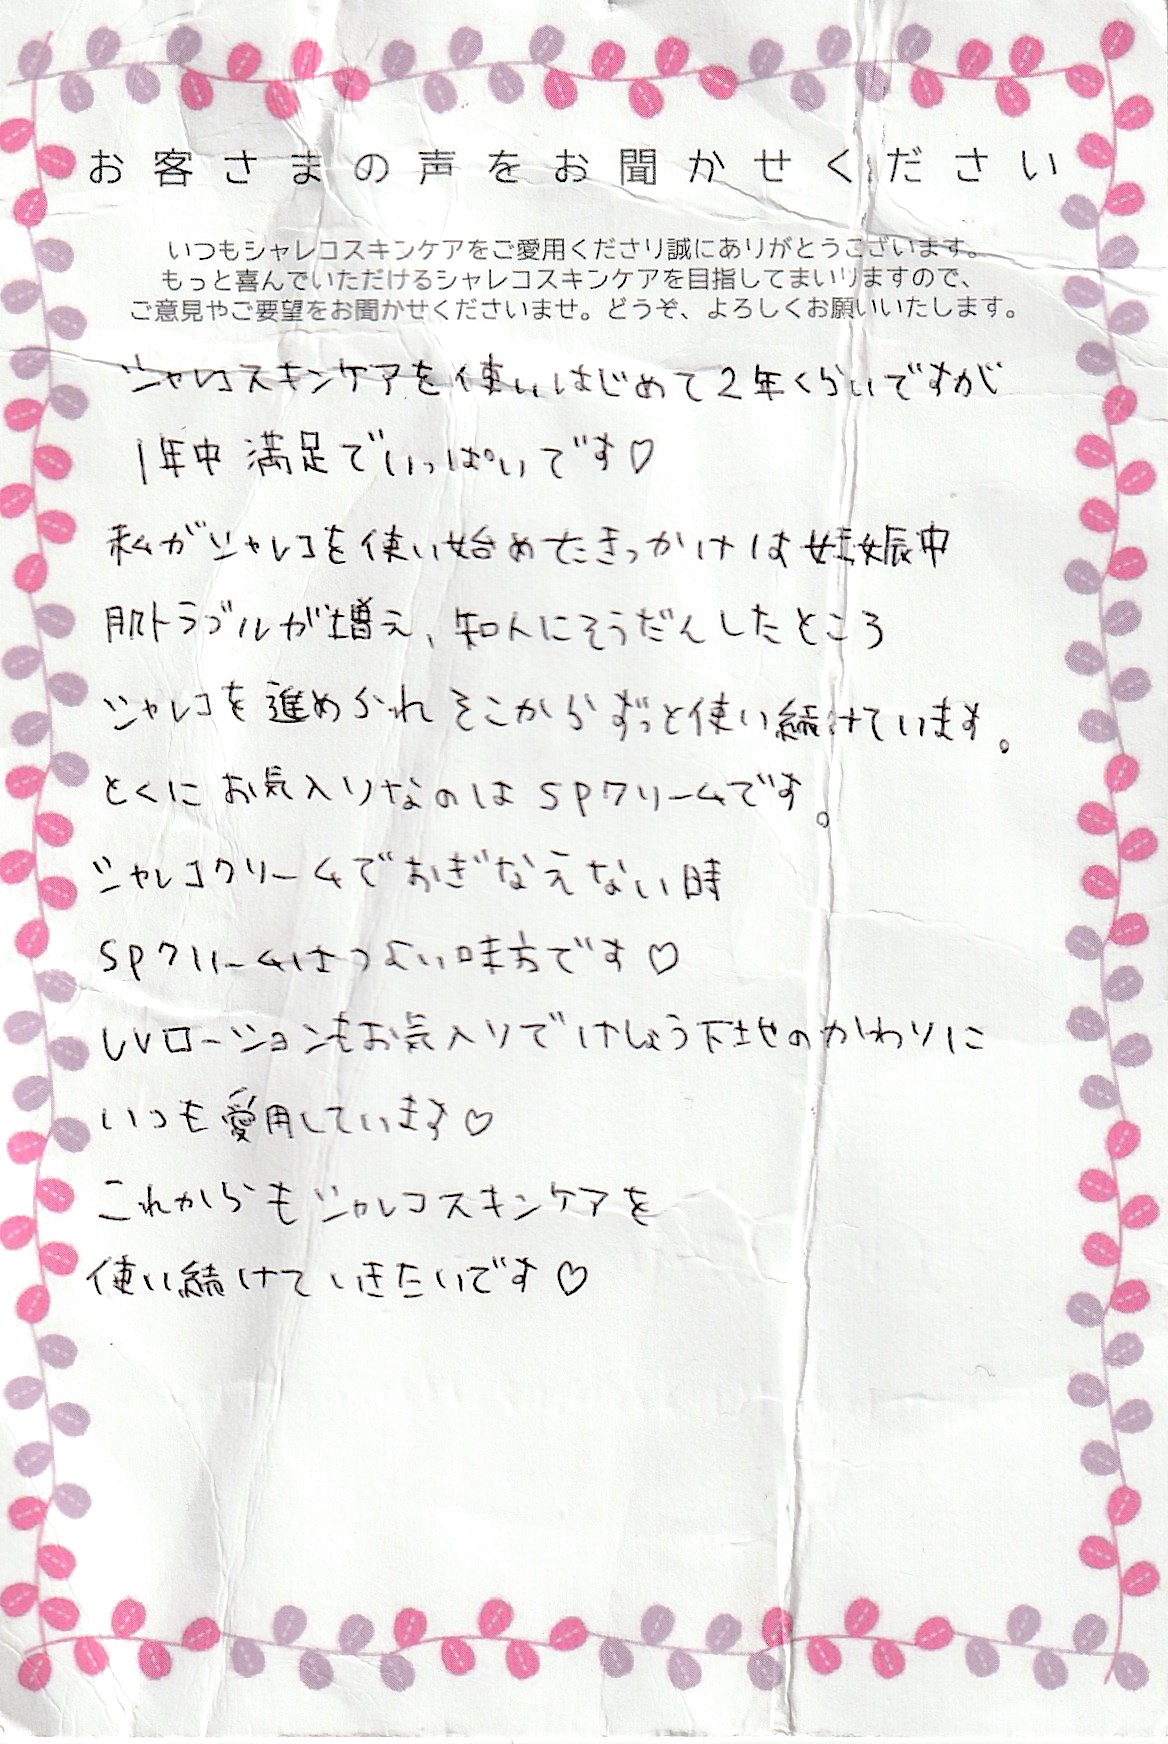 お客さまの声をお聞かせください
いつもシャレコスキンケアをご愛用くださり誠にありがとうございます。
もっと喜んでいただけるシャレコスキンケアを目指してまいりますので、
ご意見やご要望をお聞かせくださいませ。どうぞ、よろしくお願いいたします。
シャレコスキンケアを使いはじめて2年くらいですが
1年中満足でいっぱいです♡
私がシャレコを使い始めたきっかけは妊娠中
肌トラブルが増え、知人にそうだんしたところ
シャレコを進められそこからずっと使い続けています。
とくにお気入りなのはSPクリームです。
シャレコクリームでおぎなえない時
SPクリームはつよい味方です♡
UVローションもお気入りでけしょう下地のかわりに
いつも愛用しています♡
これからもシャレコスキンケアを
使い続けていきたいです♡